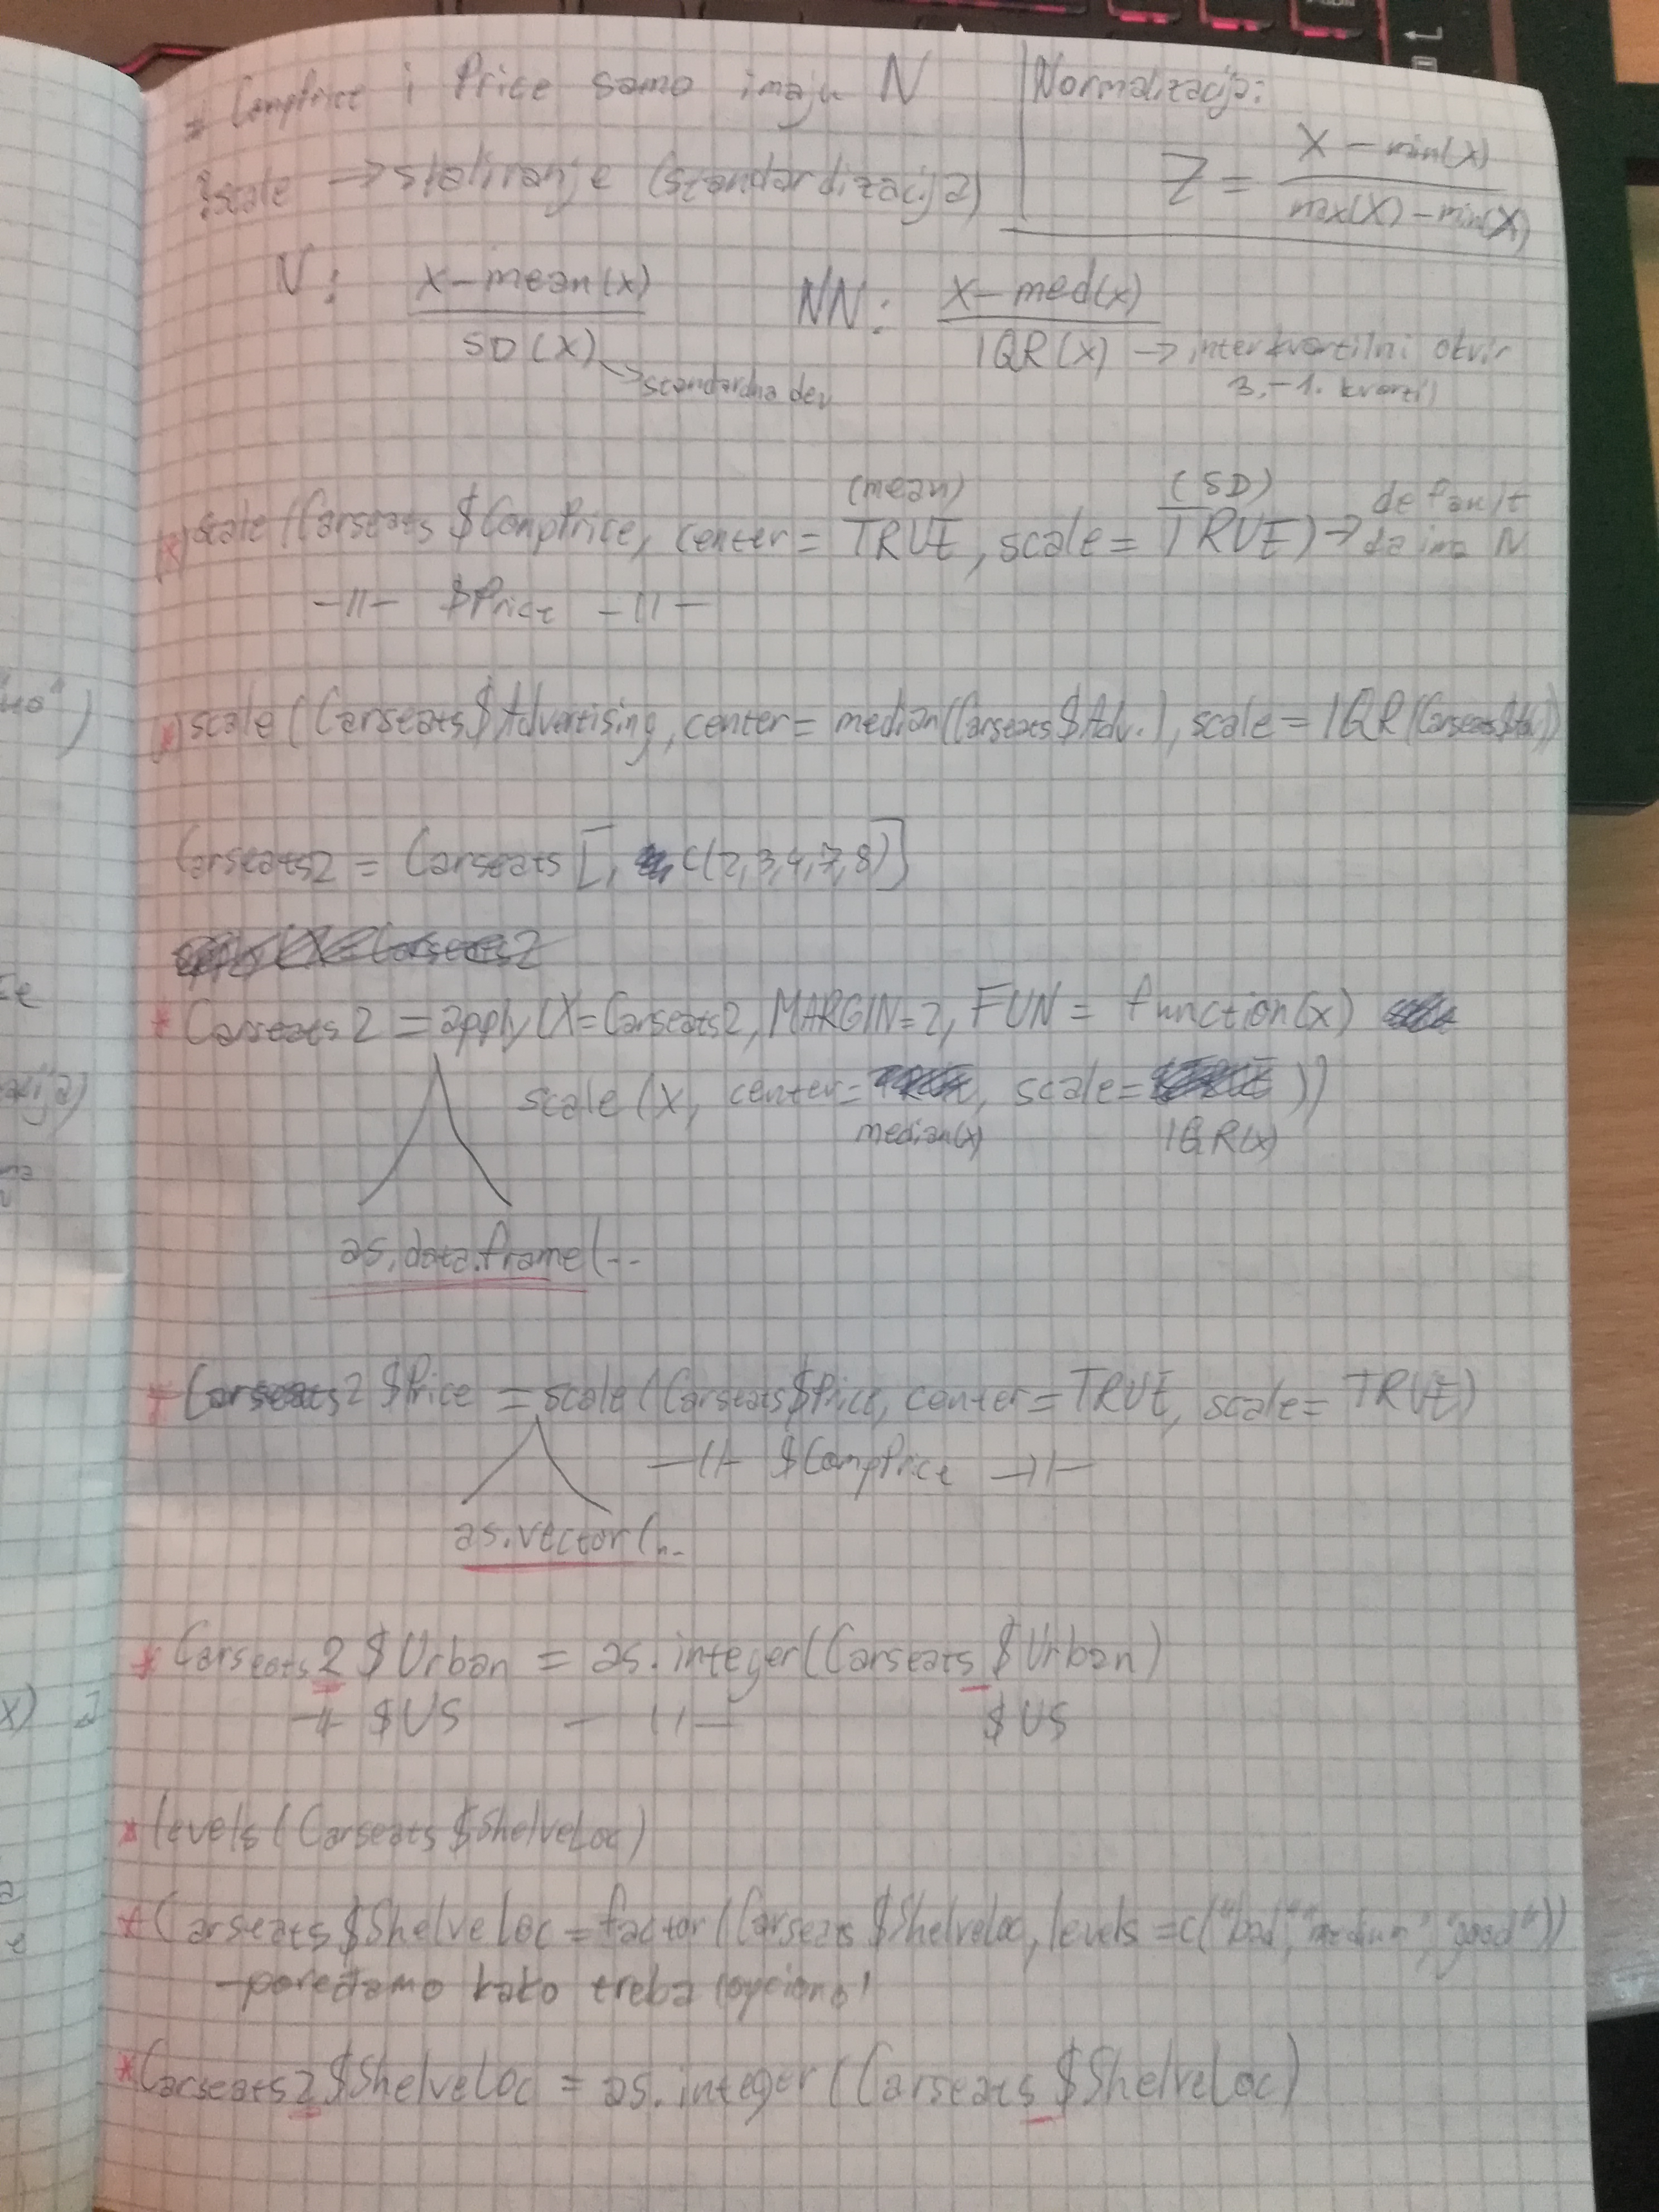 * CompPrice i Price samo imaju N
Normalizacija:
Z = X - min(X) / max(X) - min(X)
?scale → skaliranje (standardizacija)
N: X - mean(x) / SD(X) → standardna dev
NN: X - med(x) / IQR(X) → interkvartilni otvir
3. - 1. kvartil
(mean) (SD)
(*) scale(Carseats$CompPrice, center = TRUE, scale = TRUE) → default da ima N
-||- $Price -||-
(*) scale(Carseats$Advertising, center = median(Carseats$Adv.), scale = IQR(Carseats$Adv))
Carseats2 = Carseats[, c(2,3,4,7,8)]
* Carseats2 = apply(X=Carseats2, MARGIN=2, FUN = function(x)
scale(x, center= median(x), scale= IQR(x)))
as.data.frame(...
* Carseats2$Price = scale(Carseats$Price, center=TRUE, scale= TRUE)
-||- $CompPrice -||-
as.vector(...
* Carseats2$Urban = as.integer(Carseats$Urban)
-||- $US -||- $US
* levels(Carseats$ShelveLoc)
* Carseats$ShelveLoc = factor(Carseats$ShelveLoc, levels = c("bad", "medium", "good"))
- poređamo kako treba (opciono)
* Carseats2$ShelveLoc = as.integer(Carseats$ShelveLoc)